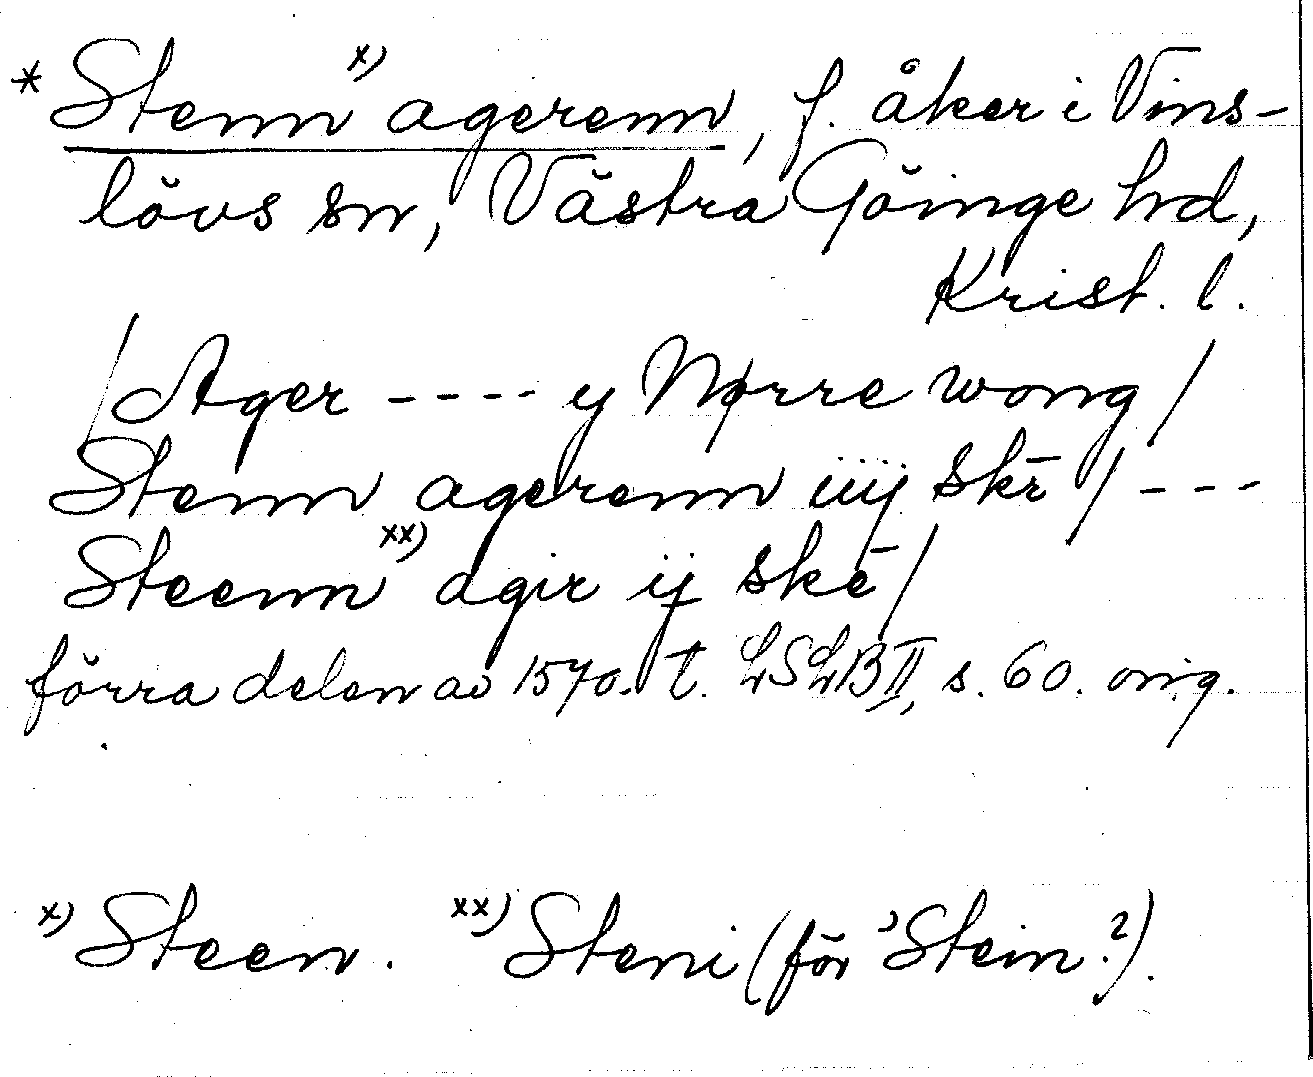 * Stenn x) agerenn, f. åker i Vins-
lövs sn, Västra Göinge hd,
Krist. l.
/Ager ---- y Nørre wong/
Stenn agerenn iiij skē / ---
Steenn xx) agir ij skē/
förra delen av 1570-t. LSLB II, s. 60. orig.
x) Steen. xx) Steni (för 'Stein'?).